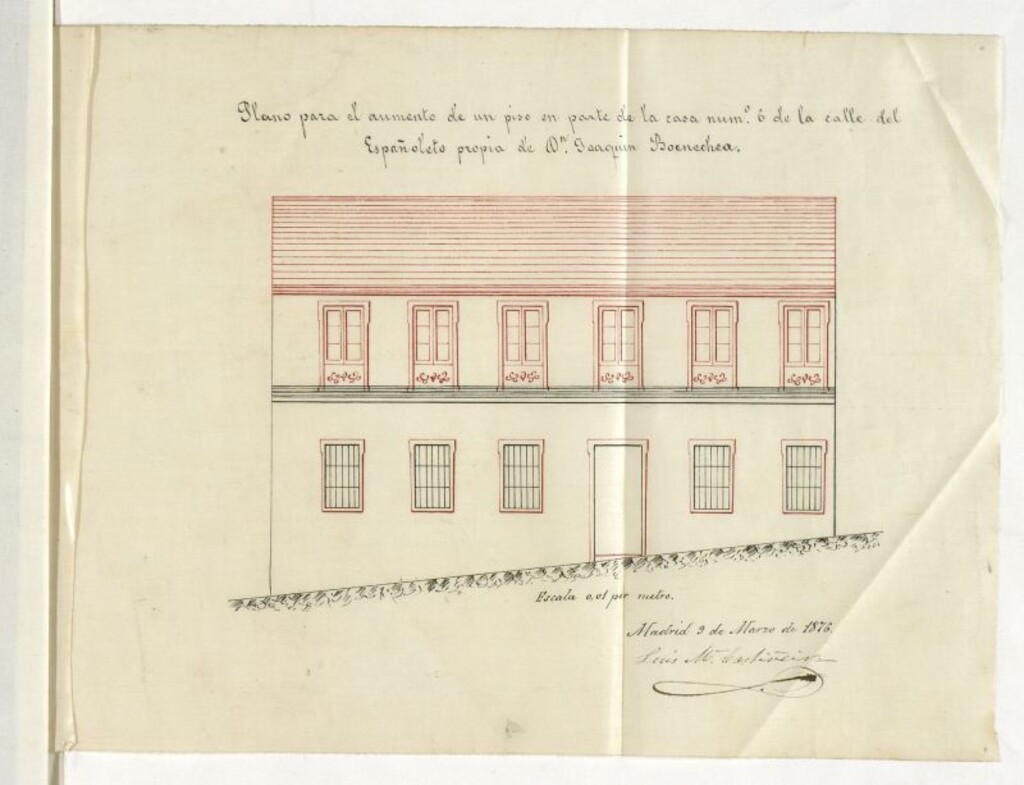 Plano para el aumento de un piso en parte de la casa num.º 6 de la calle del
Españoleto propia de Dn. Joaquin Boenechea.
Escala 0,01 por metro.
Madrid 9 de Marzo de 1876.
Luis Mª.